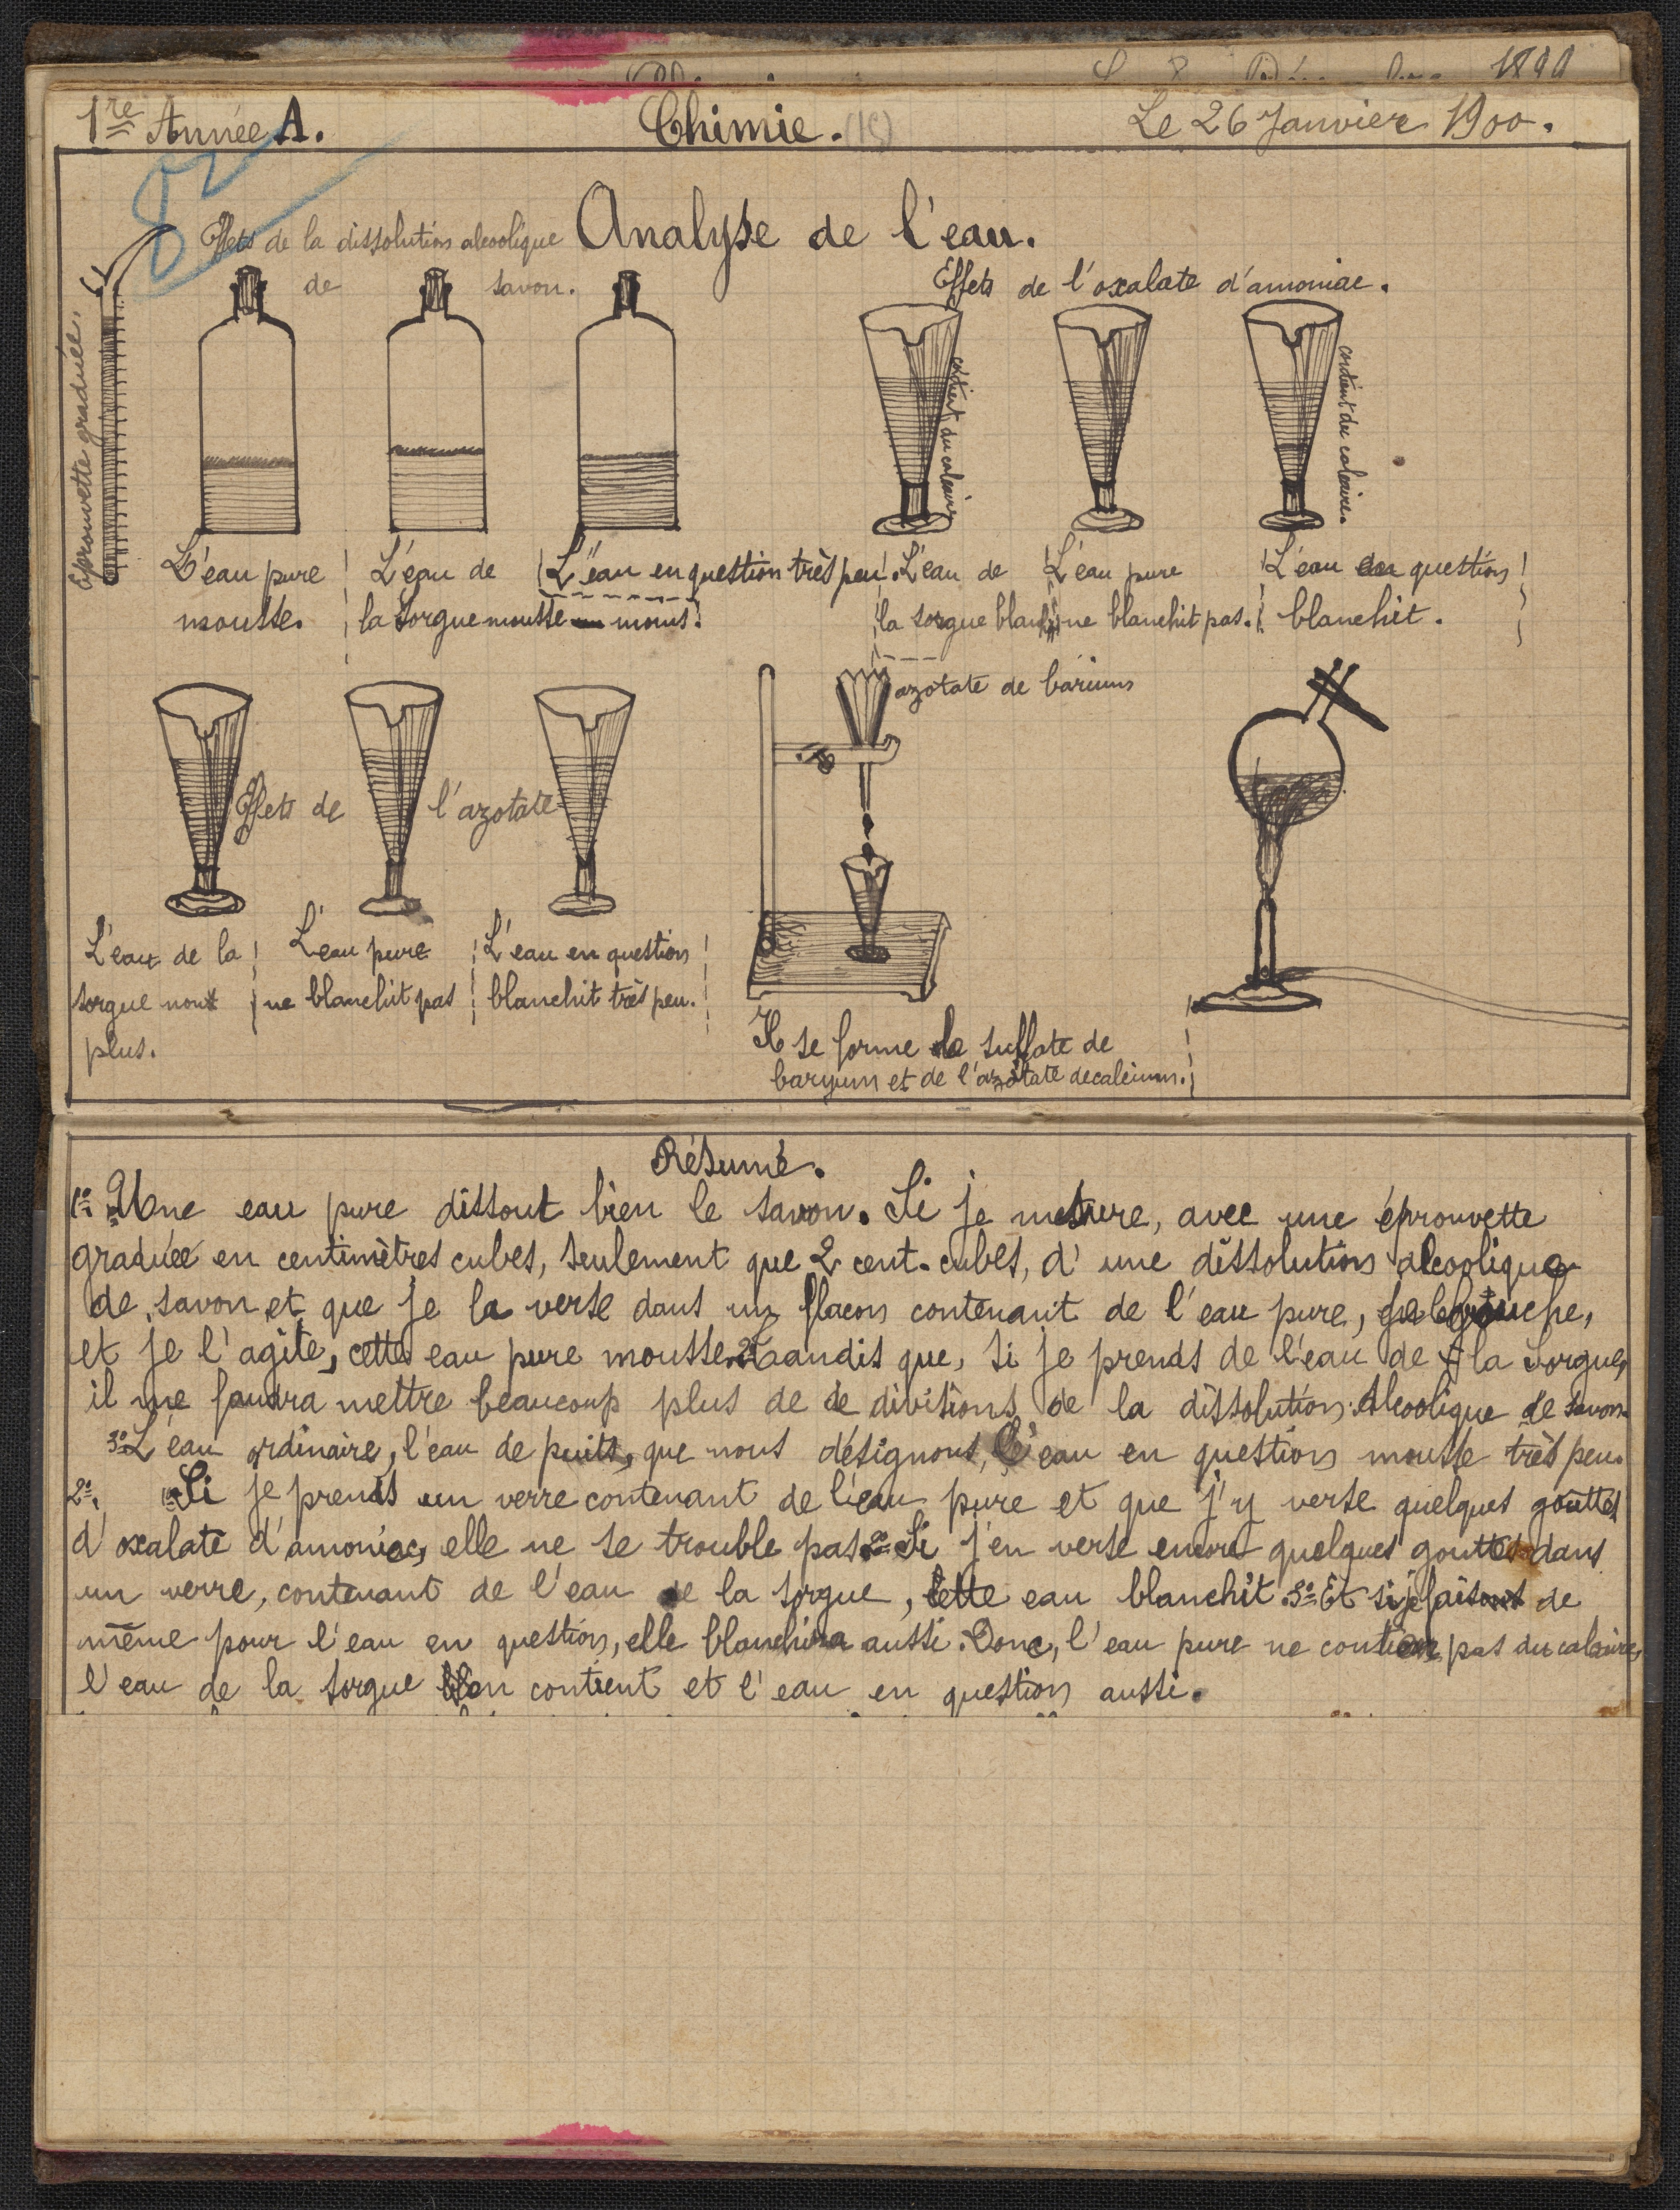 1re Année A.
Chimie. (15)
Le 26 Janvier 1900.
Analyse de l'eau.
Effets de la dissolution alcoolique
de savon.
Eprouvette graduée.
Effets de l'oxalate d'amoniac.
contient du calcaire
contient du calcaire.
L'eau pure
mousse.
L'eau de
la Sorgue mousse moins.
L'eau en question très peu.
L'eau de
la sorgue blanchit
L'eau pure
ne blanchit pas.
L'eau en question
blanchit.
Effets de l'azotate
azotate de barium
L'eau de la
sorgue non
plus.
L'eau pure
ne blanchit pas
L'eau en question
blanchit très peu.
Il se forme de sulfate de
baryum et de l'azotate de calcium.
Résumé.
1o Une eau pure dissout bien le savon. Si je mesure, avec une éprouvette
graduée en centimètres cubes, seulement que 2 cent. cubes, d'une dissolution alcoolique
de savon et que je la verse dans un flacon contenant de l'eau pure,
et je l'agite, cette eau pure mousse. 2o Tandis que, si je prends de l'eau de la Sorgue,
il me faudra mettre beaucoup plus de de divisions de la dissolution Alcoolique de savon.
3o L'eau ordinaire, l'eau de puits, que nous désignons, l'eau en question mousse très peu.
2o. 1o Si je prends un verre contenant de l'eau pure et que j'y verse quelques gouttes
d'oxalate d'amoniac, elle ne se trouble pas. 2o Si j'en verse encore quelques gouttes dans
un verre, contenant de l'eau de la sorgue, cette eau blanchit. 3o Et si je faisais de
même pour l'eau en question, elle blanchira aussi. Donc, l'eau pure ne contient pas du calcaire,
l'eau de la sorgue en contient et l'eau en question aussi.